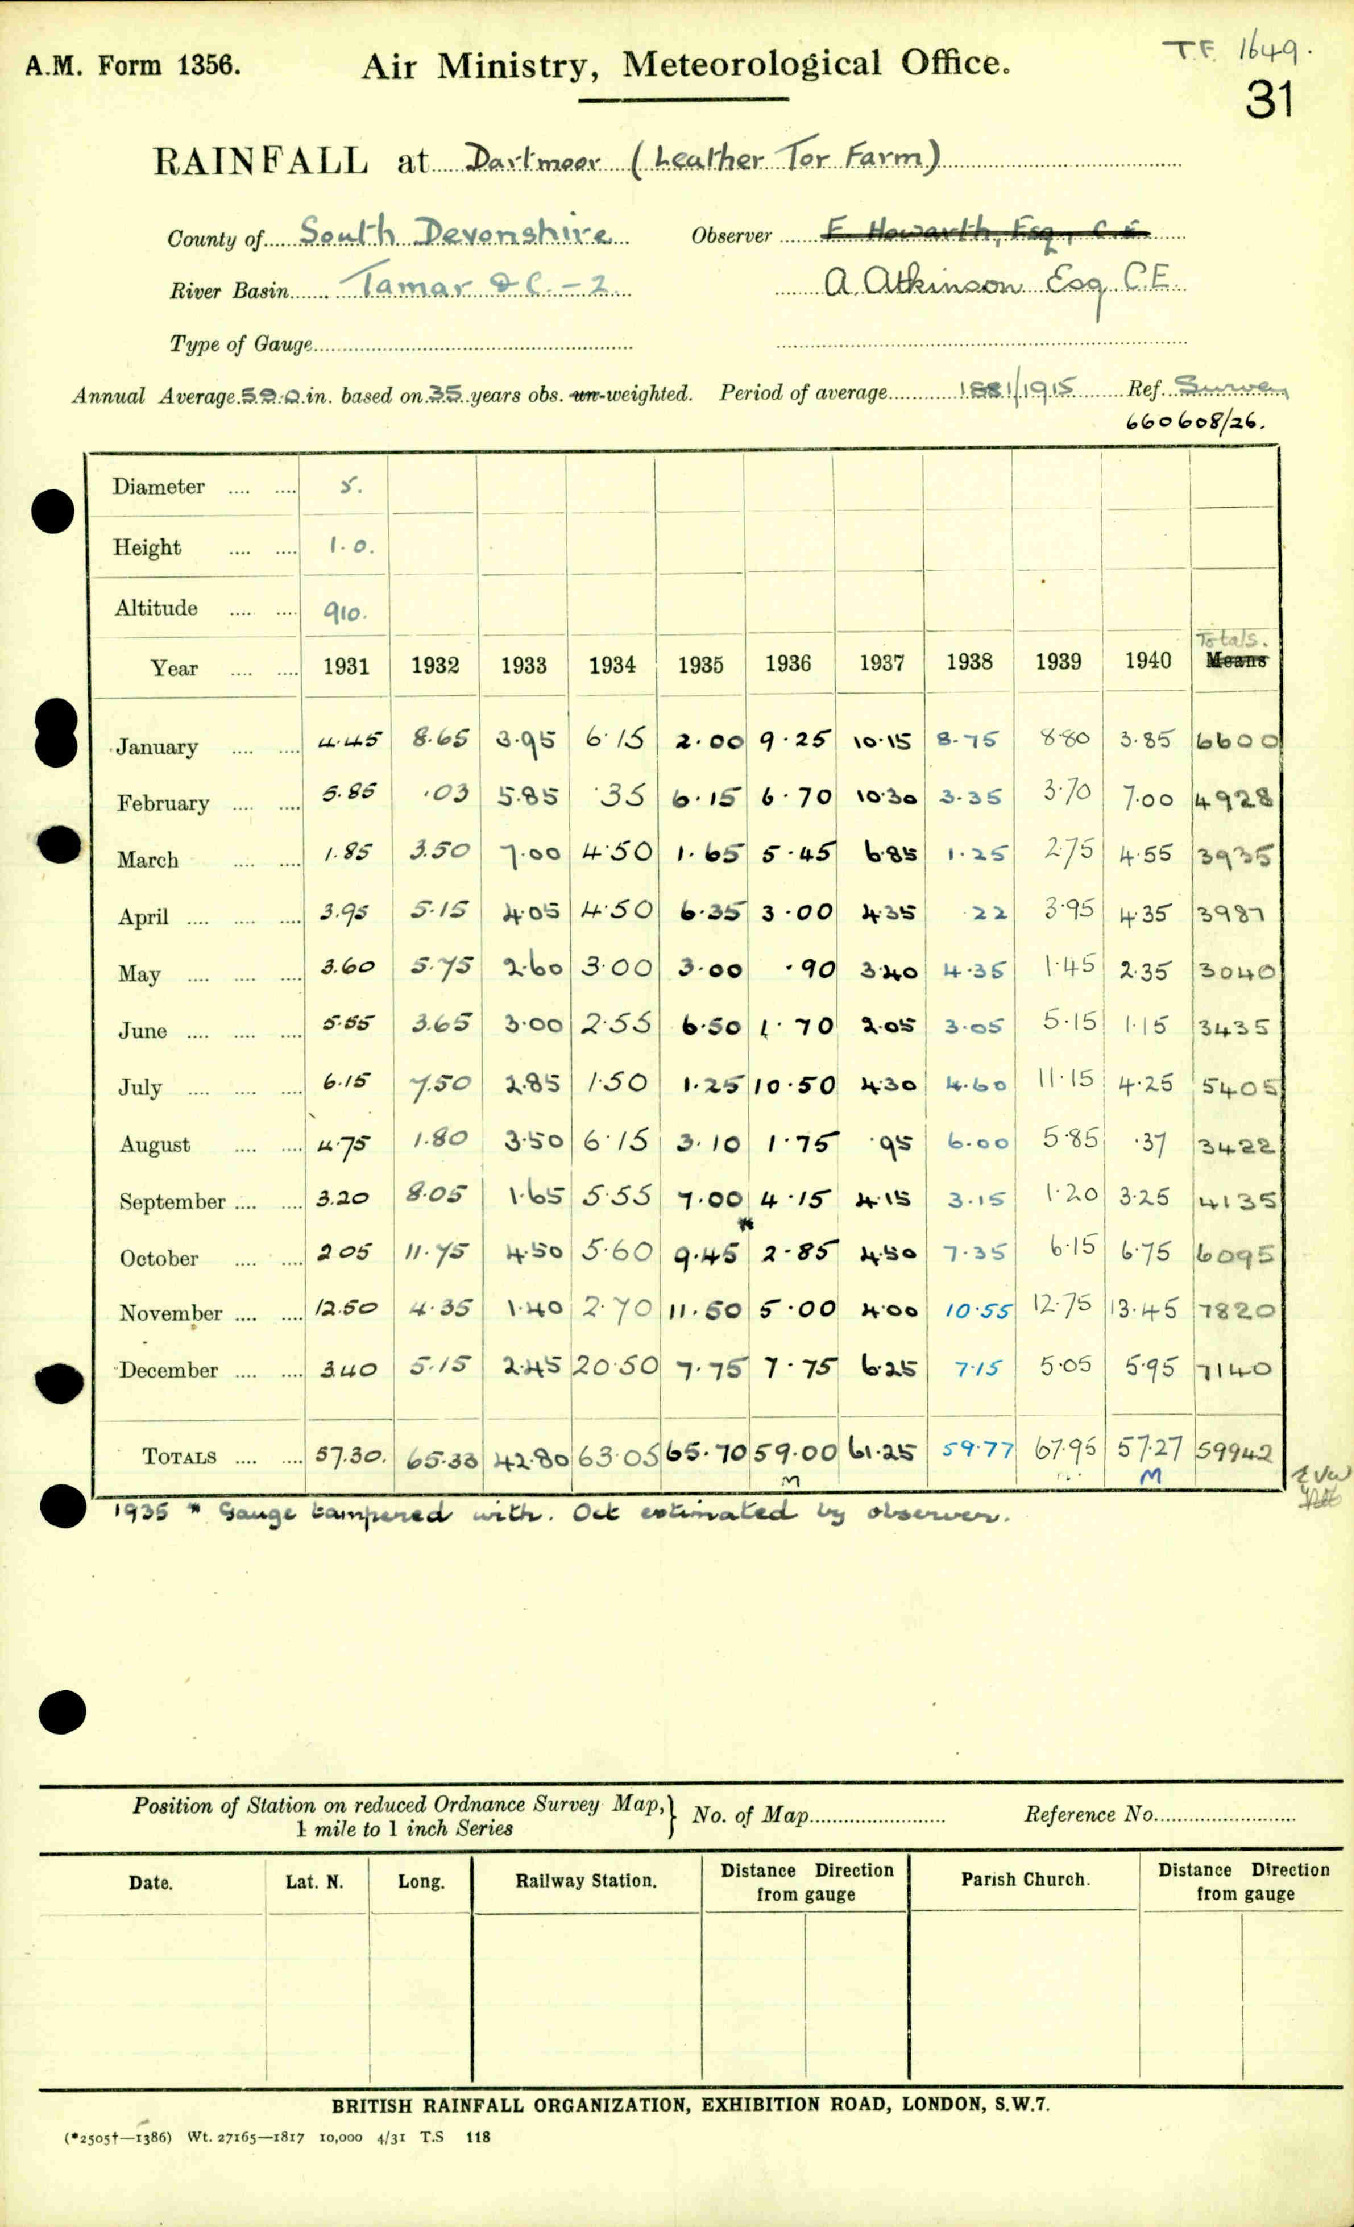 T.F. 1649.
A.M. Form 1356. Air Ministry, Meteorological Office.
31
RAINFALL at Dartmoor (Leather Tor Farm)
County of South Devonshire Observer E Howarth, Esq, C.E.
River Basin Tamar &C. - 2. A. Atkinson Esq C.E.
Type of Gauge
Annual Average 59.0 in. based on 35 years obs. un-weighted. Period of average 1881/1915 Ref. Survey
660608/26.
Diameter .... .... 5.
Height .... .... 1.0.
Altitude .... .... 910.
Totals.
Year .... .... 1931 1932 1933 1934 1935 1936 1937 1938 1939 1940 Means
January .... .... 4.45 8.65 3.95 6.15 2.00 9.25 10.15 8.75 8.80 3.85 6600
February .... .... 5.85 .03 5.85 .35 6.15 6.70 10.30 3.35 3.70 7.00 4928
March .... .... 1.85 3.50 7.00 4.50 1.65 5.45 6.85 1.25 2.75 4.55 3935
April .... .... .... 3.95 5.15 4.05 4.50 6.35 3.00 4.35 .22 3.95 4.35 3987
May .... .... .... 3.60 5.75 2.60 3.00 3.00 .90 3.40 4.35 1.45 2.35 3040
June .... .... .... 5.55 3.65 3.00 2.55 6.50 1.70 2.05 3.05 5.15 1.15 3435
July .... .... .... 6.15 7.50 2.85 1.50 1.25 10.50 4.30 4.60 11.15 4.25 5405
August .... .... 4.75 1.80 3.50 6.15 3.10 1.75 .95 6.00 5.85 .37 3422
September .... .... 3.20 8.05 1.65 5.55 7.00 4.15 4.15 3.15 1.20 3.25 4135
October .... .... 2.05 11.75 4.50 5.60 9.45* 2.85 4.50 7.35 6.15 6.75 6095
November .... .... 12.50 4.35 1.40 2.70 11.50 5.00 4.00 10.55 12.75 13.45 7820
December .... .... 3.40 5.15 2.45 20.50 7.75 7.75 6.25 7.15 5.05 5.95 7140
TOTALS .... .... 57.30. 65.33 42.80 63.05 65.70 59.00 61.25 59.77 67.95 57.27 59942
M M
1935 * Gauge tampered with. Oct estimated by observer.
Position of Station on reduced Ordnance Survey Map, } No. of Map Reference No.
1 mile to 1 inch Series
Date. Lat. N. Long. Railway Station. Distance Direction from gauge Parish Church. Distance Direction from gauge
BRITISH RAINFALL ORGANIZATION, EXHIBITION ROAD, LONDON, S.W.7.
(*2505†—1386) Wt. 27165—1817 10,000 4/31 T.S 118